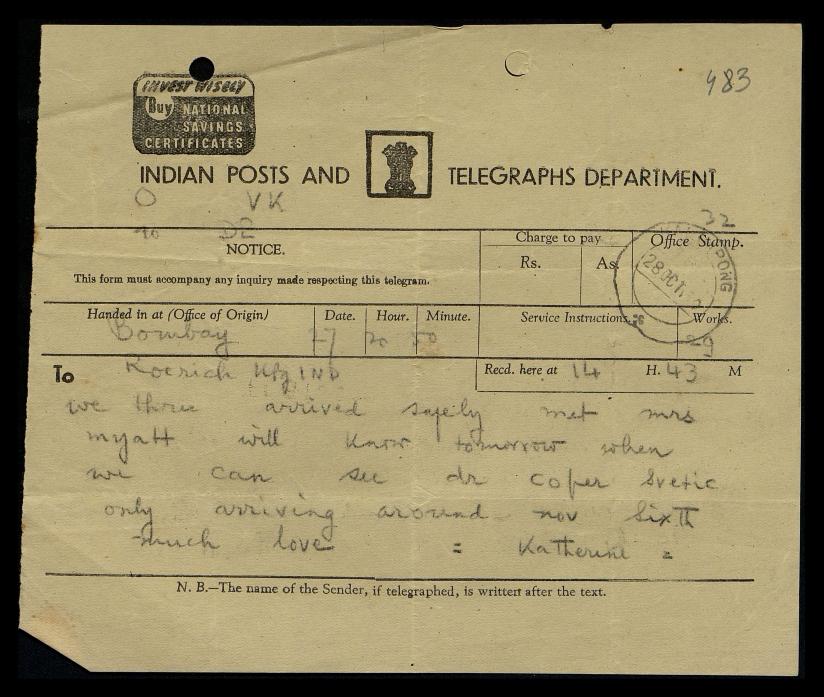 483
INVEST WISELY
Buy NATIONAL
SAVINGS
CERTIFICATES
INDIAN POSTS AND TELEGRAPHS DEPARTMENT.
O VK
32
to D2
NOTICE.
Charge to pay
Office Stamp.
This form must accompany any inquiry made respecting this telegram.
Rs. As.
PONG
28 OC
Handed in at (Office of Origin) Date. Hour. Minute. Service Instructions. Works.
Bombay 27 20 50 29
To Roerich Kpg IND
Recd. here at 14 H. 43 M
we three arrived safely met mrs
myatt will know tomorrow when
we can see dr coper svetic
only arriving around nov sixth
much love = Katherine =
N. B.—The name of the Sender, if telegraphed, is written after the text.